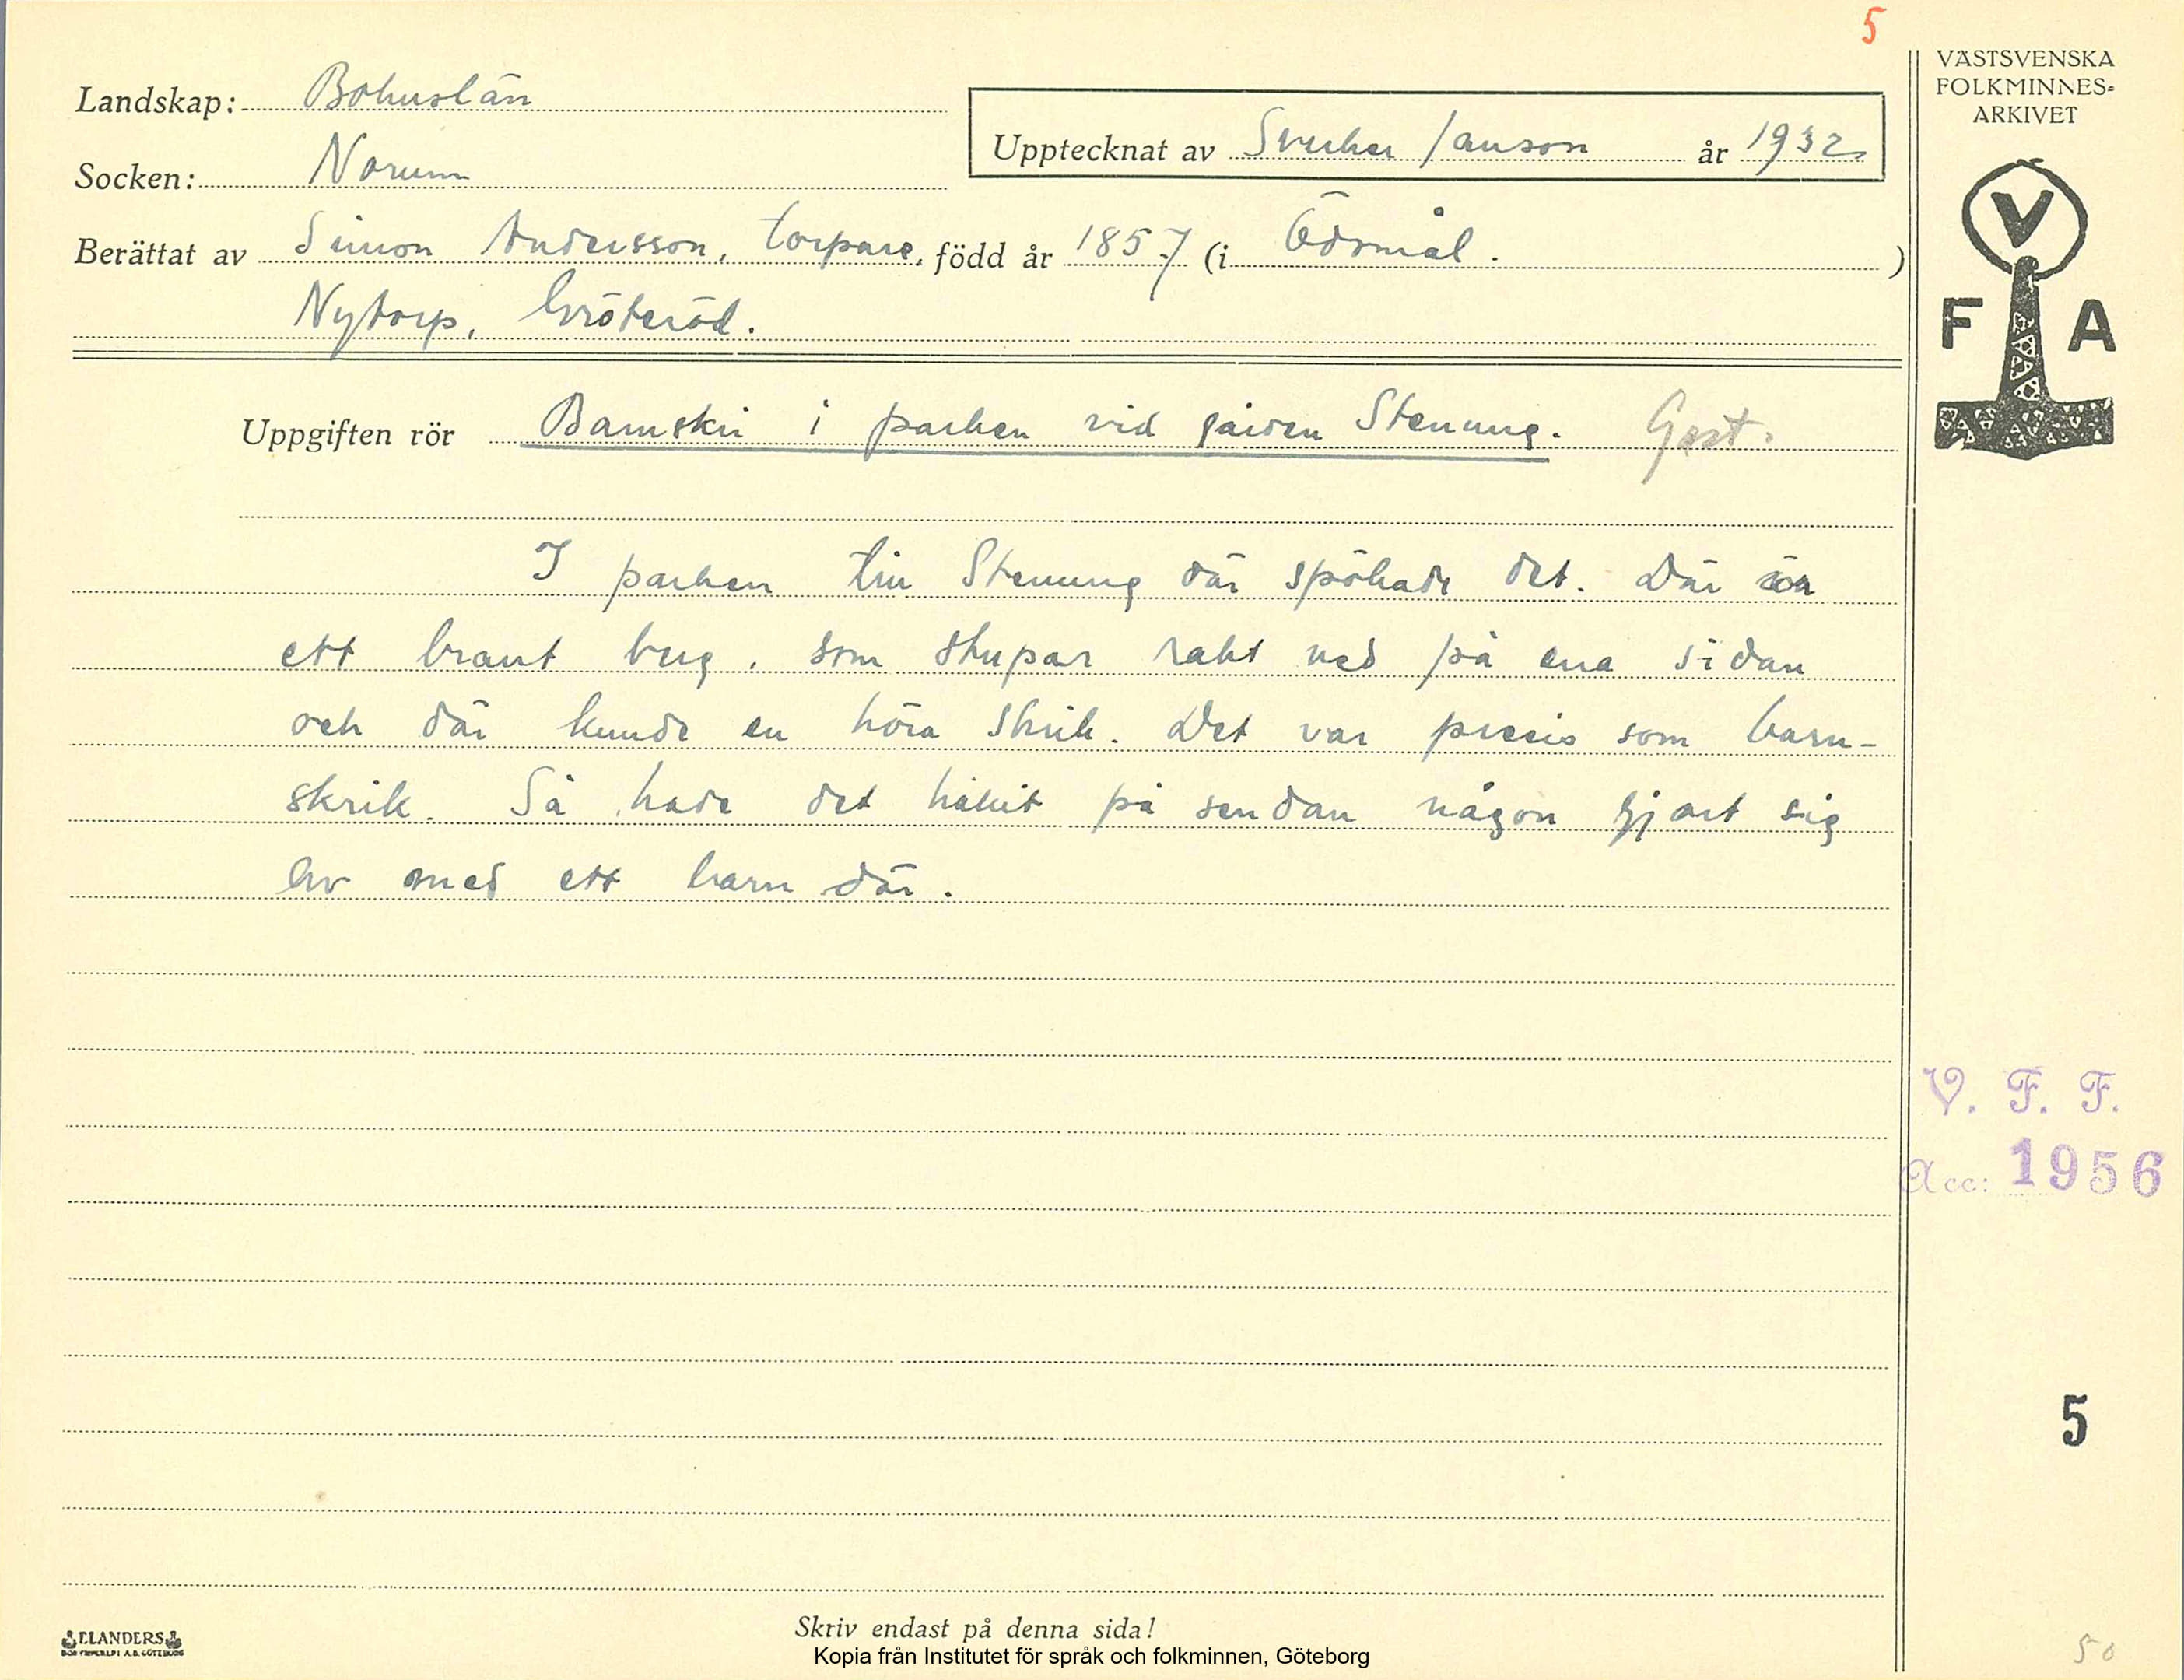 5
Landskap: Bohuslän
Socken: Norum
Upptecknat av Sverker Janson år 1932
Berättat av Simon Andersson, torpare, född år 1857 (i Ödsmål. )
Nytorp, Gröteröd.
Uppgiften rör Barnskri i parken vid gården Stenung. Gast.
I parken till Stenung där spökade det. Där är
ett brant berg, som stupar rakt ned på ena sidan
och där kunde en höra skrik. Det var precis som barn-
skrik. Så hade det hållit på sendan någon gjort sig
av med ett barn där.
VÄSTSVENSKA
FOLKMINNES-
ARKIVET
V
F A
V. F. F.
Acc: 1956
5
Skriv endast på denna sida!
ELANDERS
Kopia från Institutet för språk och folkminnen, Göteborg
50